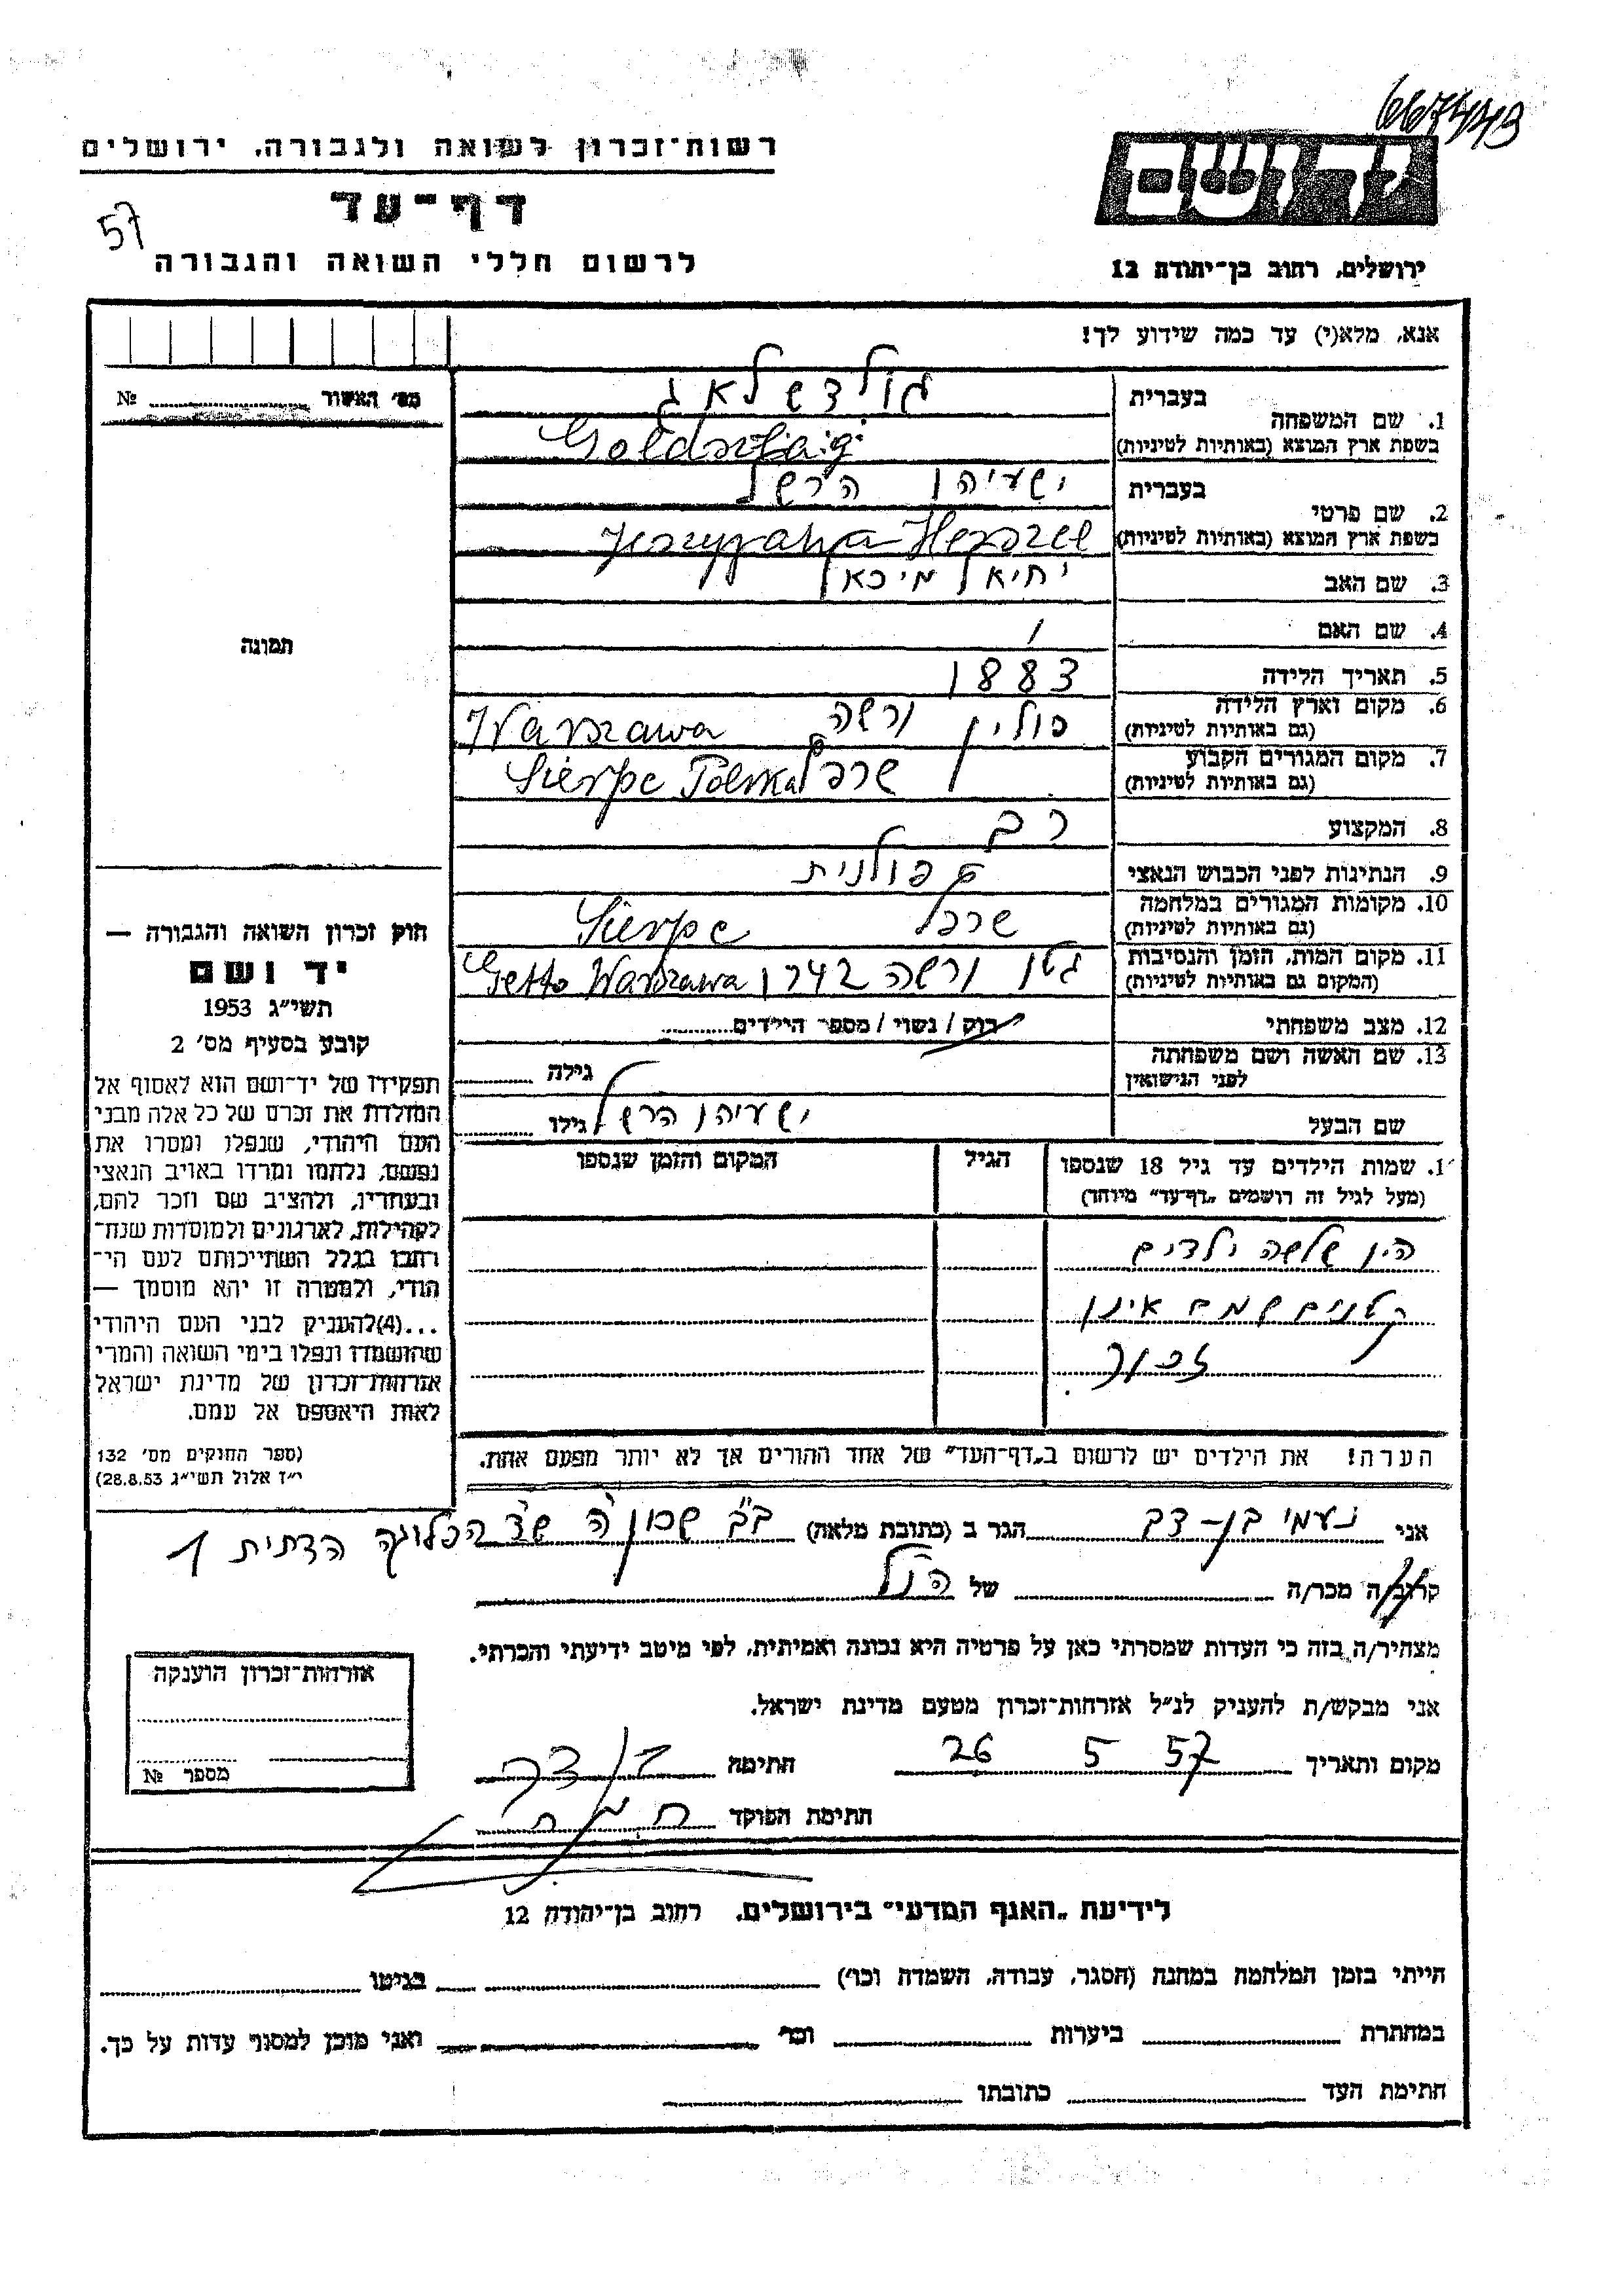 667449
רשות־זכרון לשואה ולגבורה, ירושלים
דף־עד
57
לרשום חללי השואה והגבורה
יד ושם
ירושלים, רחוב בן־יהודה 12
אנא, מלא(י) עד כמה שידוע לך!
מס׳ האשור № 
1. שם המשפחה
בעברית גולדשלאג
בשפת ארץ המוצא (באותיות לטיניות) Goldszlag
2. שם פרטי
בעברית ישעיהו הרשל
בשפת ארץ המוצא (באותיות לטיניות) Herszel
3. שם האב יחיאל מיכאל
4. שם האם /
5. תאריך הלידה 1883
6. מקום וארץ הלידה פולין ורשה Warszawa
(גם באותיות לטיניות)
7. מקום המגורים הקבוע שרפץ Sierpc Polska
(גם באותיות לטיניות)
8. המקצוע רב
9. הנתינות לפני הכבוש הנאצי פולנית
10. מקומות המגורים במלחמה Sierpc
(גם באותיות לטיניות)
11. מקום המות, הזמן והנסיבות גטו ורשה 942 Getto Warszawa
(המקום גם באותיות לטיניות)
12. מצב משפחתי רוק / נשוי / מספר הילדים
13. שם האשה ושם משפחתה
לפני הנישואין
גילה
שם הבעל ישעיהו הרשל גילו
תמונה
חוק זכרון השואה והגבורה —
יד ושם
תשי״ג 1953
קובע בסעיף מס׳ 2
תפקידו של יד־ושם הוא לאסוף אל
המולדת את זכרם של כל אלה מבני
העם היהודי, שנפלו ומסרו את
נפשם, נלחמו ומרדו באויב הנאצי
ובעוזריו, ולהציב שם וזכר להם,
לקהילות, לארגונים ולמוסדות שנח־
רבו בגלל השתייכותם לעם הי־
הודי, ולמטרה זו יהא מוסמך —
...(4)להעניק לבני העם היהודי
שהושמדו ונפלו בימי השואה והמרי
אזרחות־זכרון של מדינת ישראל
לאות היאספם אל עמם.
(ספר החוקים מס׳ 132
י״ז אלול תשי״ג 28.8.53)
1. שמות הילדים עד גיל 18 שנספו
(מעל לגיל זה רושמים „דף־עד״ מיוחד)
הגיל
המקום והזמן שנספו
היו שלשה ילדים
קטנים שמם אינו
זכור
הערה! את הילדים יש לרשום ב„דף־העד״ של אחד ההורים אך לא יותר מפעם אחת.
אני נעמי בן־דב הגר ב (כתובת מלאה) ב״ב שכון ה הדתית 1
קרוב/ה מכר/ה של הנ״ל
מצהיר/ה בזה כי העדות שמסרתי כאן על פרטיה היא נכונה ואמיתית, לפי מיטב ידיעתי והכרתי.
אני מבקש/ת להעניק לנ״ל אזרחות־זכרון מטעם מדינת ישראל.
מקום ותאריך 26 5 57 חתימה בן דב
חתימת הפוקד
אזרחות־זכרון הוענקה
מספר №
לידיעת „האגף המדעי״ בירושלים, רחוב בן־יהודה 12
הייתי בזמן המלחמה במחנה (הסגר, עבודה, השמדה וכו׳) בגיטו
במחתרת ביערות וכו׳ ואני מוכן למסור עדות על כך.
חתימת העד כתובתו